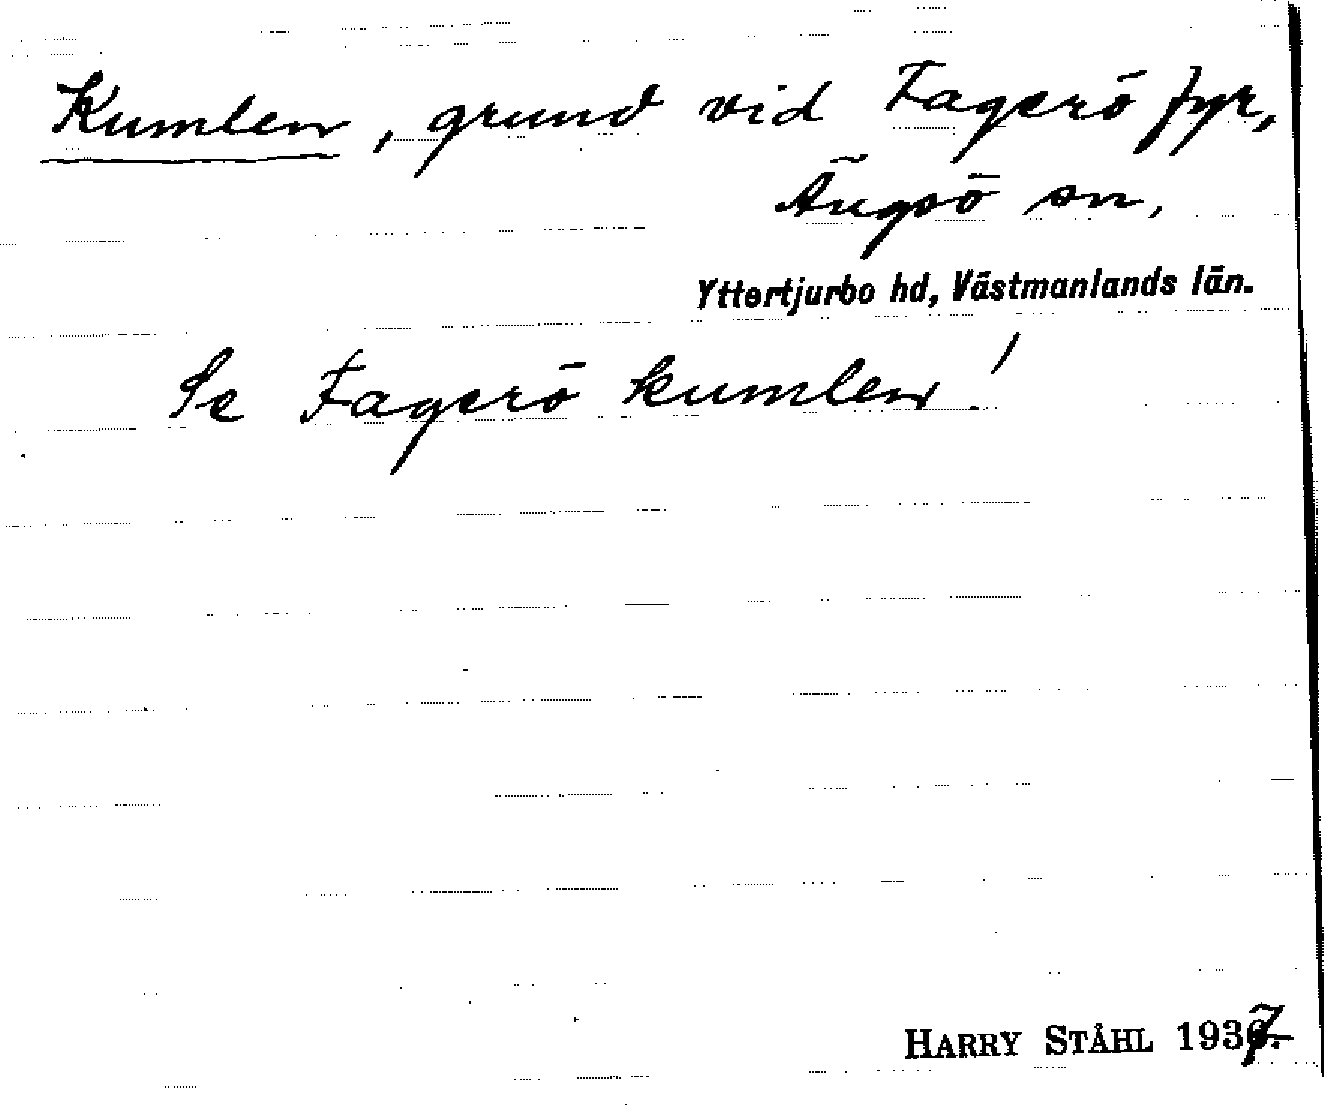 Kumlen, grund vid Fagerö fyr,
Ängsö sn,
Yttertjurbo hd, Västmanlands län.
Se Fagerö kumlen!
HARRY STÅHL 1937.